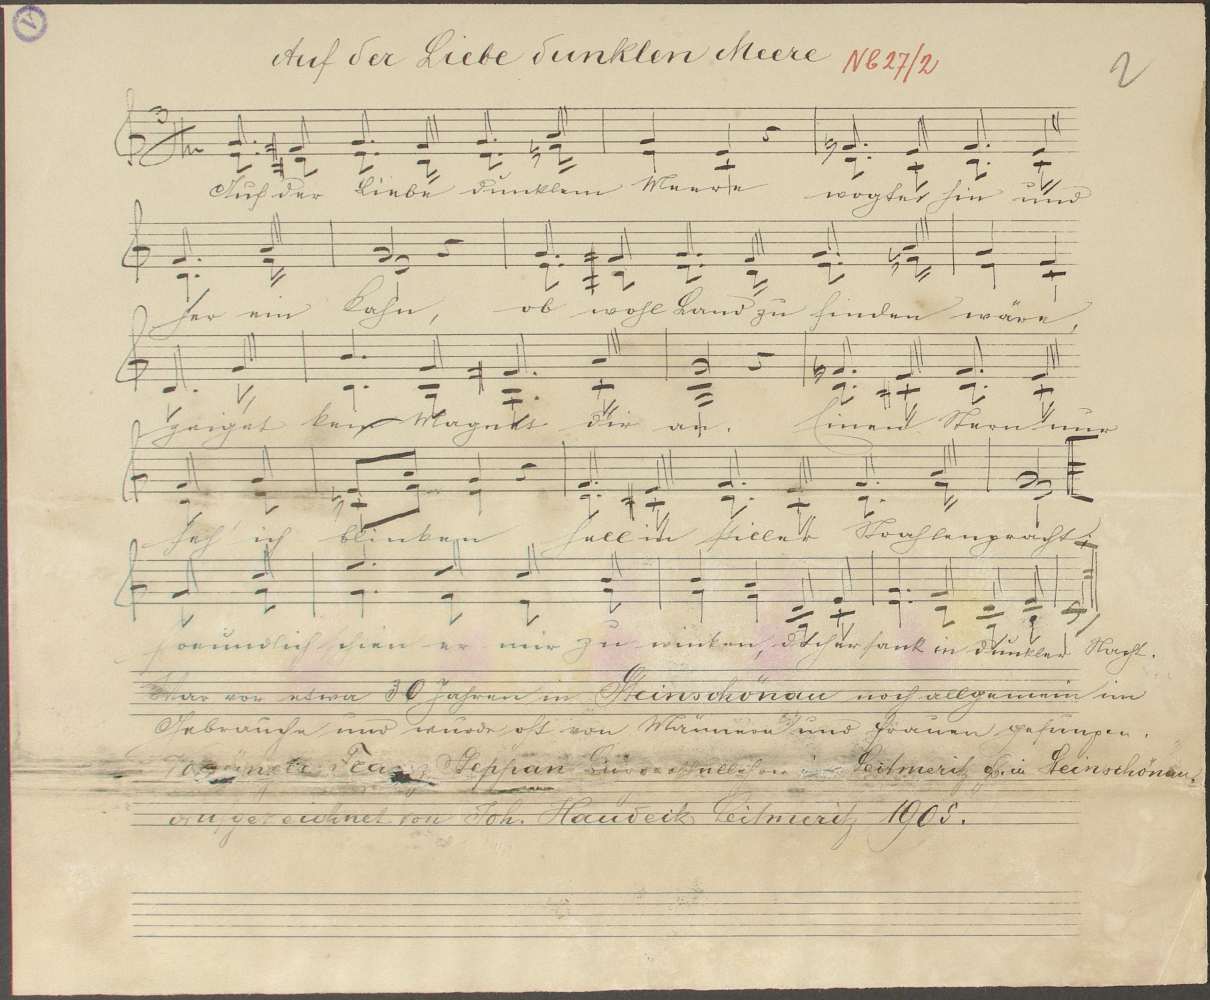 V
Auf der Liebe dunklen Meere NB 27/2 2
Auf der Liebe dunklem Meere wogte hin und
her ein Kahn, ob wohl Land zu finden wäre,
zeiget kein Magnet dir an. Einen Stern nur
seh' ich blinken hell in stiller Strahlenpracht;
freundlich schien er mir zu winken, doch er sank in dunkler Nacht.
War vor etwa 30 Jahren in Steinschönau noch allgemein im
Gebrauche und wurde oft von Männern und Frauen gesungen.
Franz Zeppan Leitmeritz in Steinschönau.
aufgezeichnet von Joh. Haudeck Leitmeritz 1905.